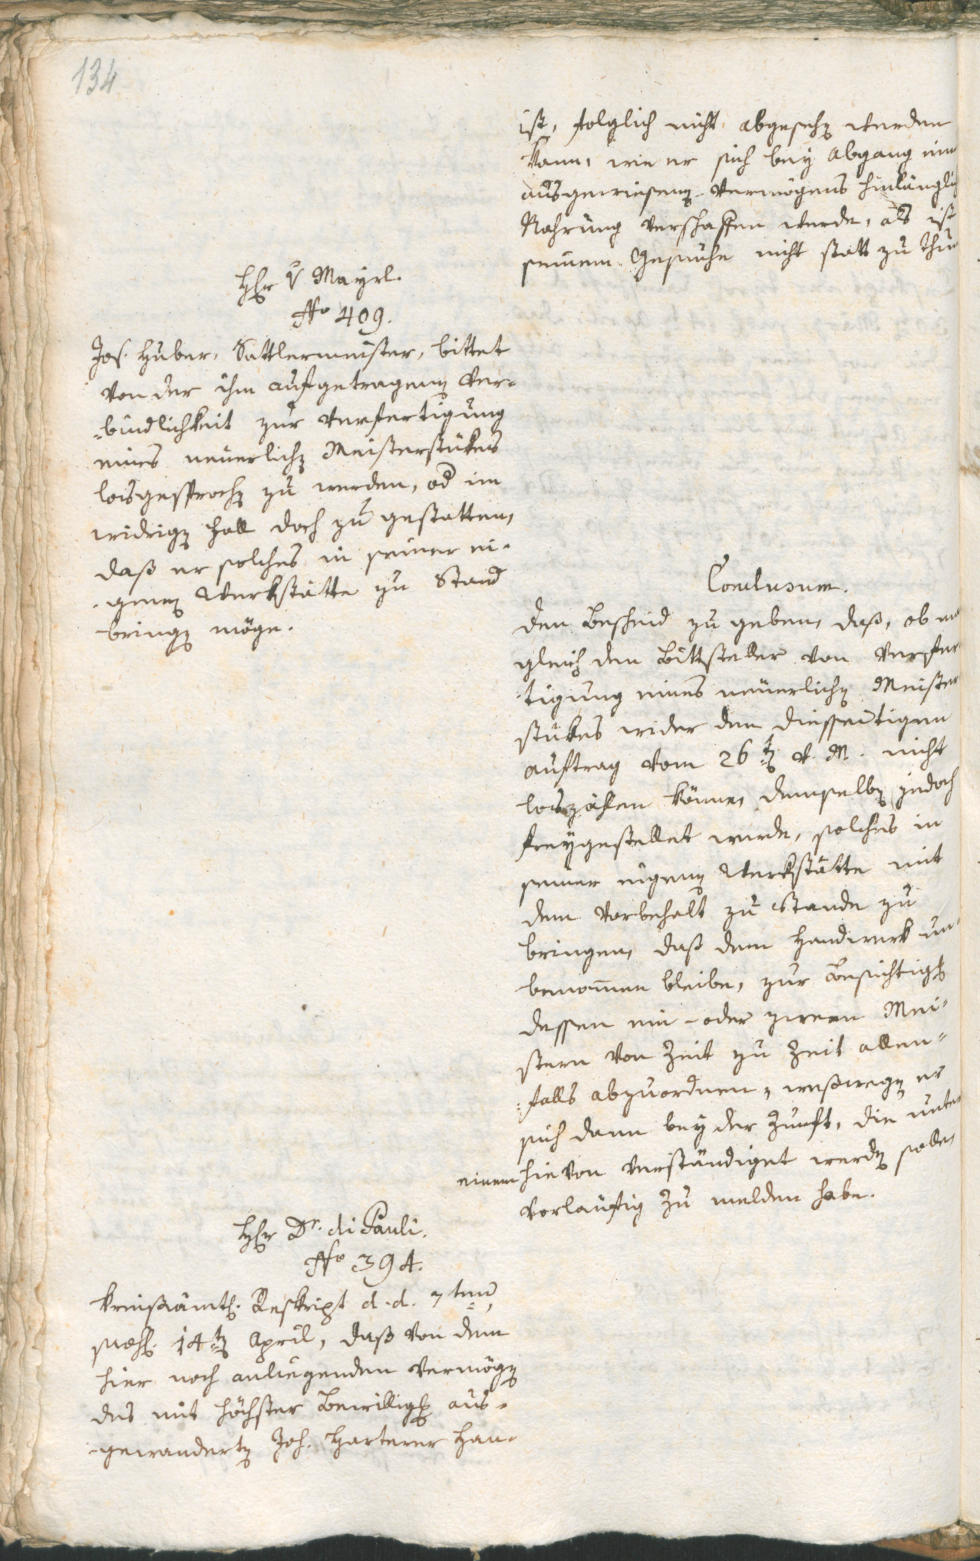 134
ist, folglich nicht abgesehen werden
kann, wie er sich bey Abgang eines
ausgewiesenen Vermögens hinlänglich
Nahrung verschaffen werde, als ist
seinem Gesuche nicht statt zu thun
Hr v Mayrl.
No 409.
Jos. Huber, Sattlermeister, bittet
von der ihm aufgetragenen Ver-
-bindlichkeit zur Verfertigung
eines neuerlichen Meisterstükes
losgesprochen zu werden, od im
widrigen Fall doch zu gestatten,
daß er solches in seiner ei-
-genen Werkstätte zu Stand
bringen möge.
Conclusum.
den Bescheid zu geben, daß, ob man
gleich den Bittsteller von Verfer
-tigung eines neuerlichen Meister
stükes wider den diesseitigen
Auftrag vom 26ten v. M. nicht
loszählen könne, demselben jedoch
freygestellet werde, solches in
seiner eigenen Werkstätte mit
dem Vorbehalt zu Stande zu
bringen, daß dem Handwerk un-
benommen bleibe, zur Besichtigung
dessen ein- oder zween Mei-
stern von Zeit zu Zeit allen-
-falls abzuordnen, weßwegen er
sich dann bey der Zunft, die unter
einem hievon verständiget werden solle,
vorläufig zu melden habe.
Hr Dr. di Pauli.
No 394.
Kreisämtl. Reskript d. d. 7ten
14ten April, daß von dem
hier noch anliegenden Vermögen
des mit höchster Bewilligung aus-
-gewanderten Joh. Harterer Han-